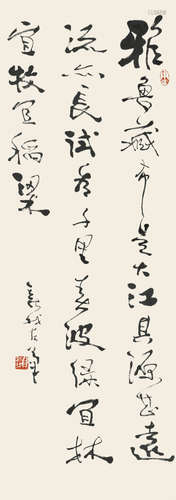 雅魯藏布是大江其源甚遠
流亦長試看千里波绿宜林
宜牧宜稻粱